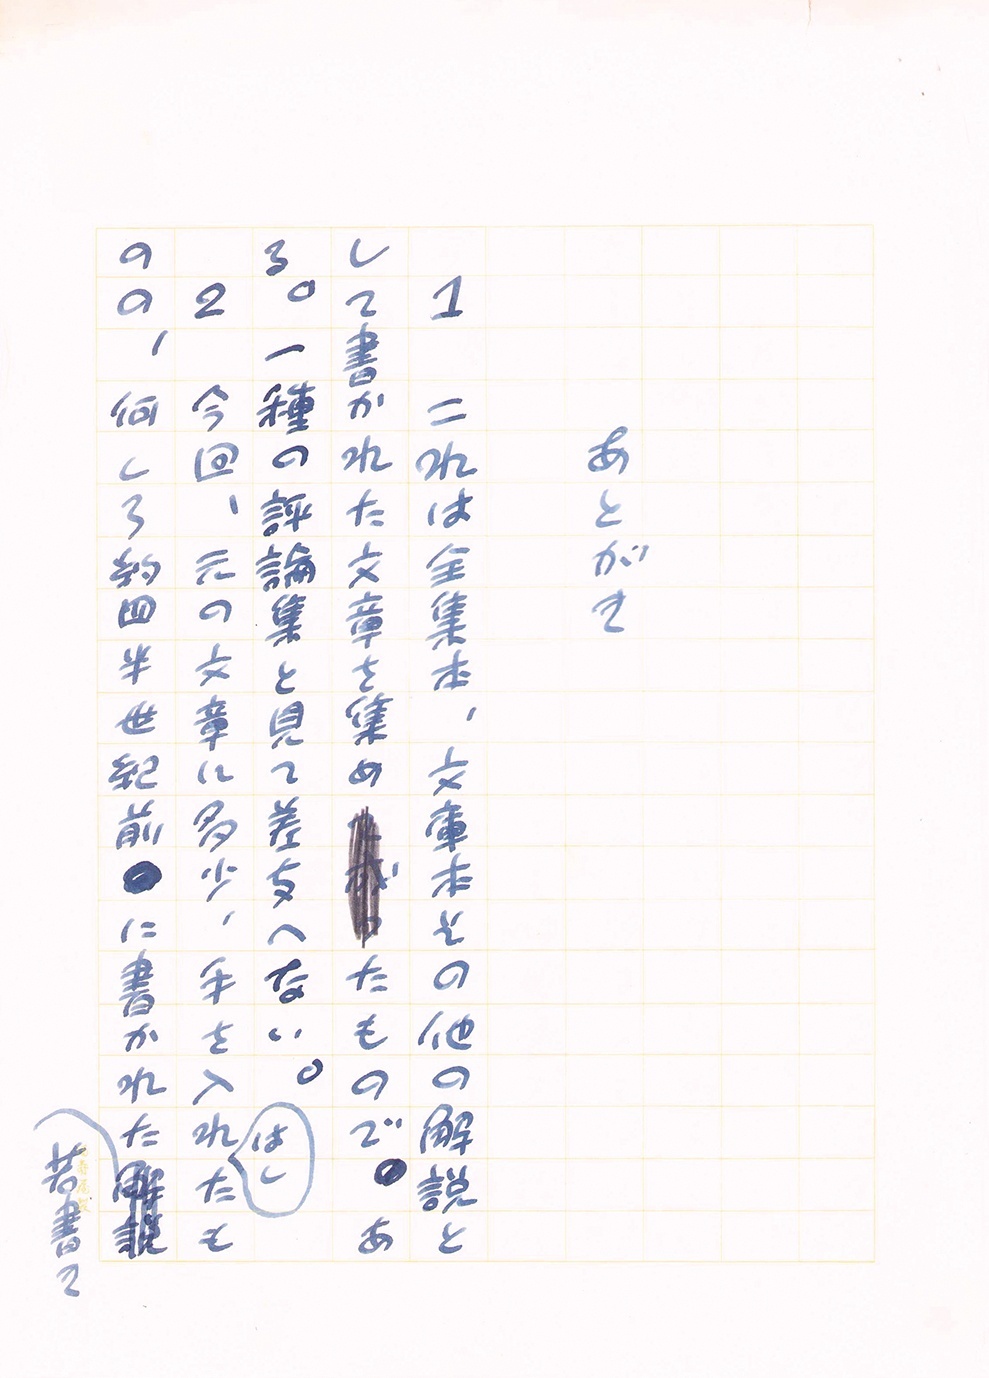 あとがき
1　これは全集本、文庫本その他の解説と
して書かれた文章を集めたものであ
る。一種の評論集と見て差支へない。
2　今回、元の文章に多少、手を入れたも
のの、何しろ約四半世紀前に書かれた
若書き
はし